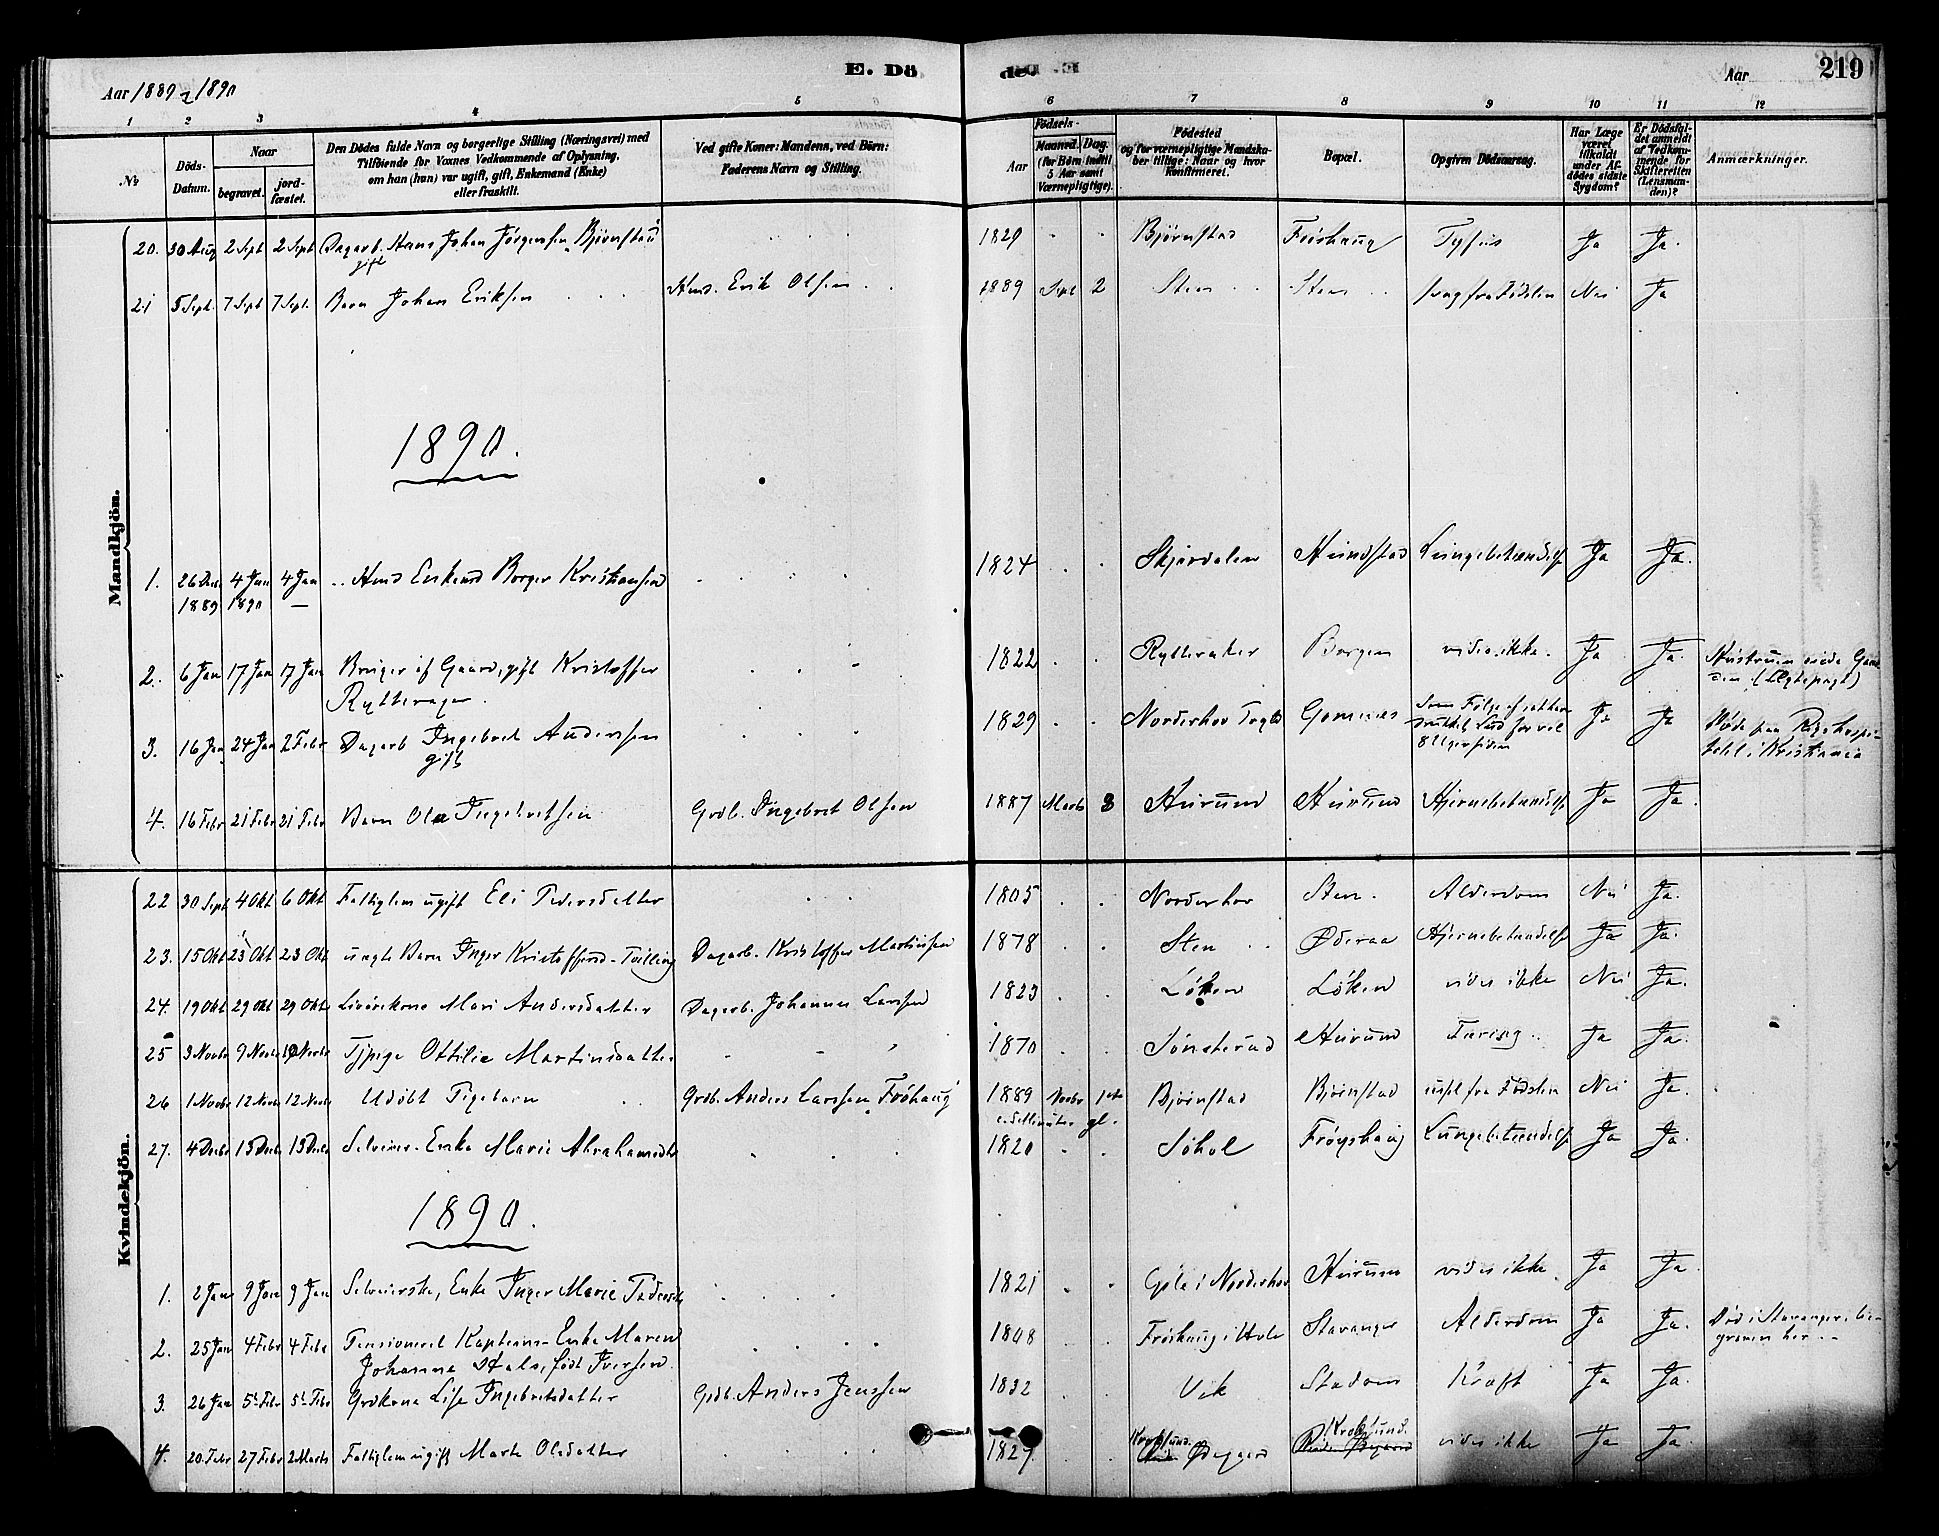 Aar 1889 & 1890
E. Dö
de. E.
Aar
219
1 2 3 4 5 6 7 8 9 10 11 12
No
Döds-Datum.
Naar
begravet.
jordfæstet.
Den Dödes fulde Navn og borgerlige Stilling (Næringsvei) med
Tilföiende for Voxnes Vedkommende af Oplysning,
om han (hun) var ugift, gift, Enkemand (Enke)
eller fraskilt.
Ved gifte Koner: Mandens, ved Börn:
Faderens Navn og Stilling.
Födsels-
Aar
Maaned. Dag.
(for Börn indtil
5 Aar samt
Værnepligtige).
Födested
og for værnepligtige Mandskaber tillige: Naar og hvor
konfirmeret.
Bopæl.
Opgiven Dödsaarsag.
Har Læge
været
tilkaldt
under Afdödes sidste
Sygdom?
Er Dödsfaldet anmeldt
af Vedkommende for
Skifteretten
(Lensmanden)?
Anmærkninger.
Mandkjön.
20. 30 Aug 2 Sept 2 Sept Dagarb. Hans Johan Jörgensen Björnstad 1829 Björnstad Fröshaug Tyfus Ja Ja.
gift
21 5 Sept. 7 Sept 7 Sept. Barn Johan Eriksen Hmd. Erik Olsen 1889 Sept 2 Sten Sten svag fra Födslen Nei Ja
1890.
1. 26 Dec 4 Jan 4 Jan Hmd Enkemd Borger Kristiansen 1824 Skjerdalen Hundstad Lungebetændelse Ja Ja.
1889 1890
2. 6 Jan 17 Jan 17 Jan Bruger af Gaard, gift Kristoffer 1822 Rytteraker Borgen vides ikke. Ja Ja.
Rytterager
3. 16 Jan 24 Jan 2 Febr Dagarb Ingebret Andersen 1829 Norderhov Gomnes Ja Ja Döde paa Rigshospitalet i Kristiania
gift
4. 16 Febr 21 Febr 21 Febr Barn Ole Ingebretsen Grdb. Ingebret Olsen 1887 Marts 8 Hurum Hurum Hjernebetændelse Ja Ja.
Kvindekjön.
22 30 Sept 4 Okt 6 Okt Fattiglem ugift Eli Pedersdatter 1805 Norderhov Sten. Alderdom Nei Ja.
23. 15 Okt 23 Okt 23 Okt ungt Barn Inger Kristoffersd. Tvilling Dagarb. Kristoffer Martinsen 1878 Sten Öderaa Hjernebetændelse Ja Ja.
24. 19 Okt 29 Okt 29 Okt Livörekone Mari Andersdatter Dagarb. Johannes Larsen 1823 Löken Löken vides ikke Nei Ja.
25 3 Novbr 9 Novbr 10 Novbr Tjpige Ottilie Martinsdatter 1870 Sönsterud Hurum Tæring Ja Ja.
26 1 Novbr 12 Novbr 12 Novbr Udöbt Pigebarn Grdb. Anders Larssen Fröhaug 1889 Novbr 1 Björnstad Björnstad fra Födslen Nei Ja.
27. 4 Decbr 13 Decbr 13 Decbr Selveier-Enke Marie Abrahamsdtr 1820 Söhol Fröyshaug Lungebetændelse Ja Ja.
1890.
1. 2 Jan 9 Jan 9 Jan Selveierske, Enke Inger Marie Pedersdtr 1821 Gjile i Norderhov Hurum vides ikke Ja Ja.
2. 25 Jan 4 Febr 4 Febr Pensioneret Kapteins-Enke Maren 1808 Fröshaug i Hole Stavanger Alderdom Ja Ja. Död i Stavanger, begraven her.
Johanna Hals, födt Iversen.
3. 26 Jan 5 Febr 5 Febr Grdkona Lise Ingebretsdatter Grdb. Anders Jenssen 1832 Vik Stadum Kræft Ja Ja.
4. 20 Febr 27 Febr 2 Marts Fattiglem ugift Marte Olsdatter 1827 Kroksund Ödegard Kroksund. vides ikke Ja Ja.